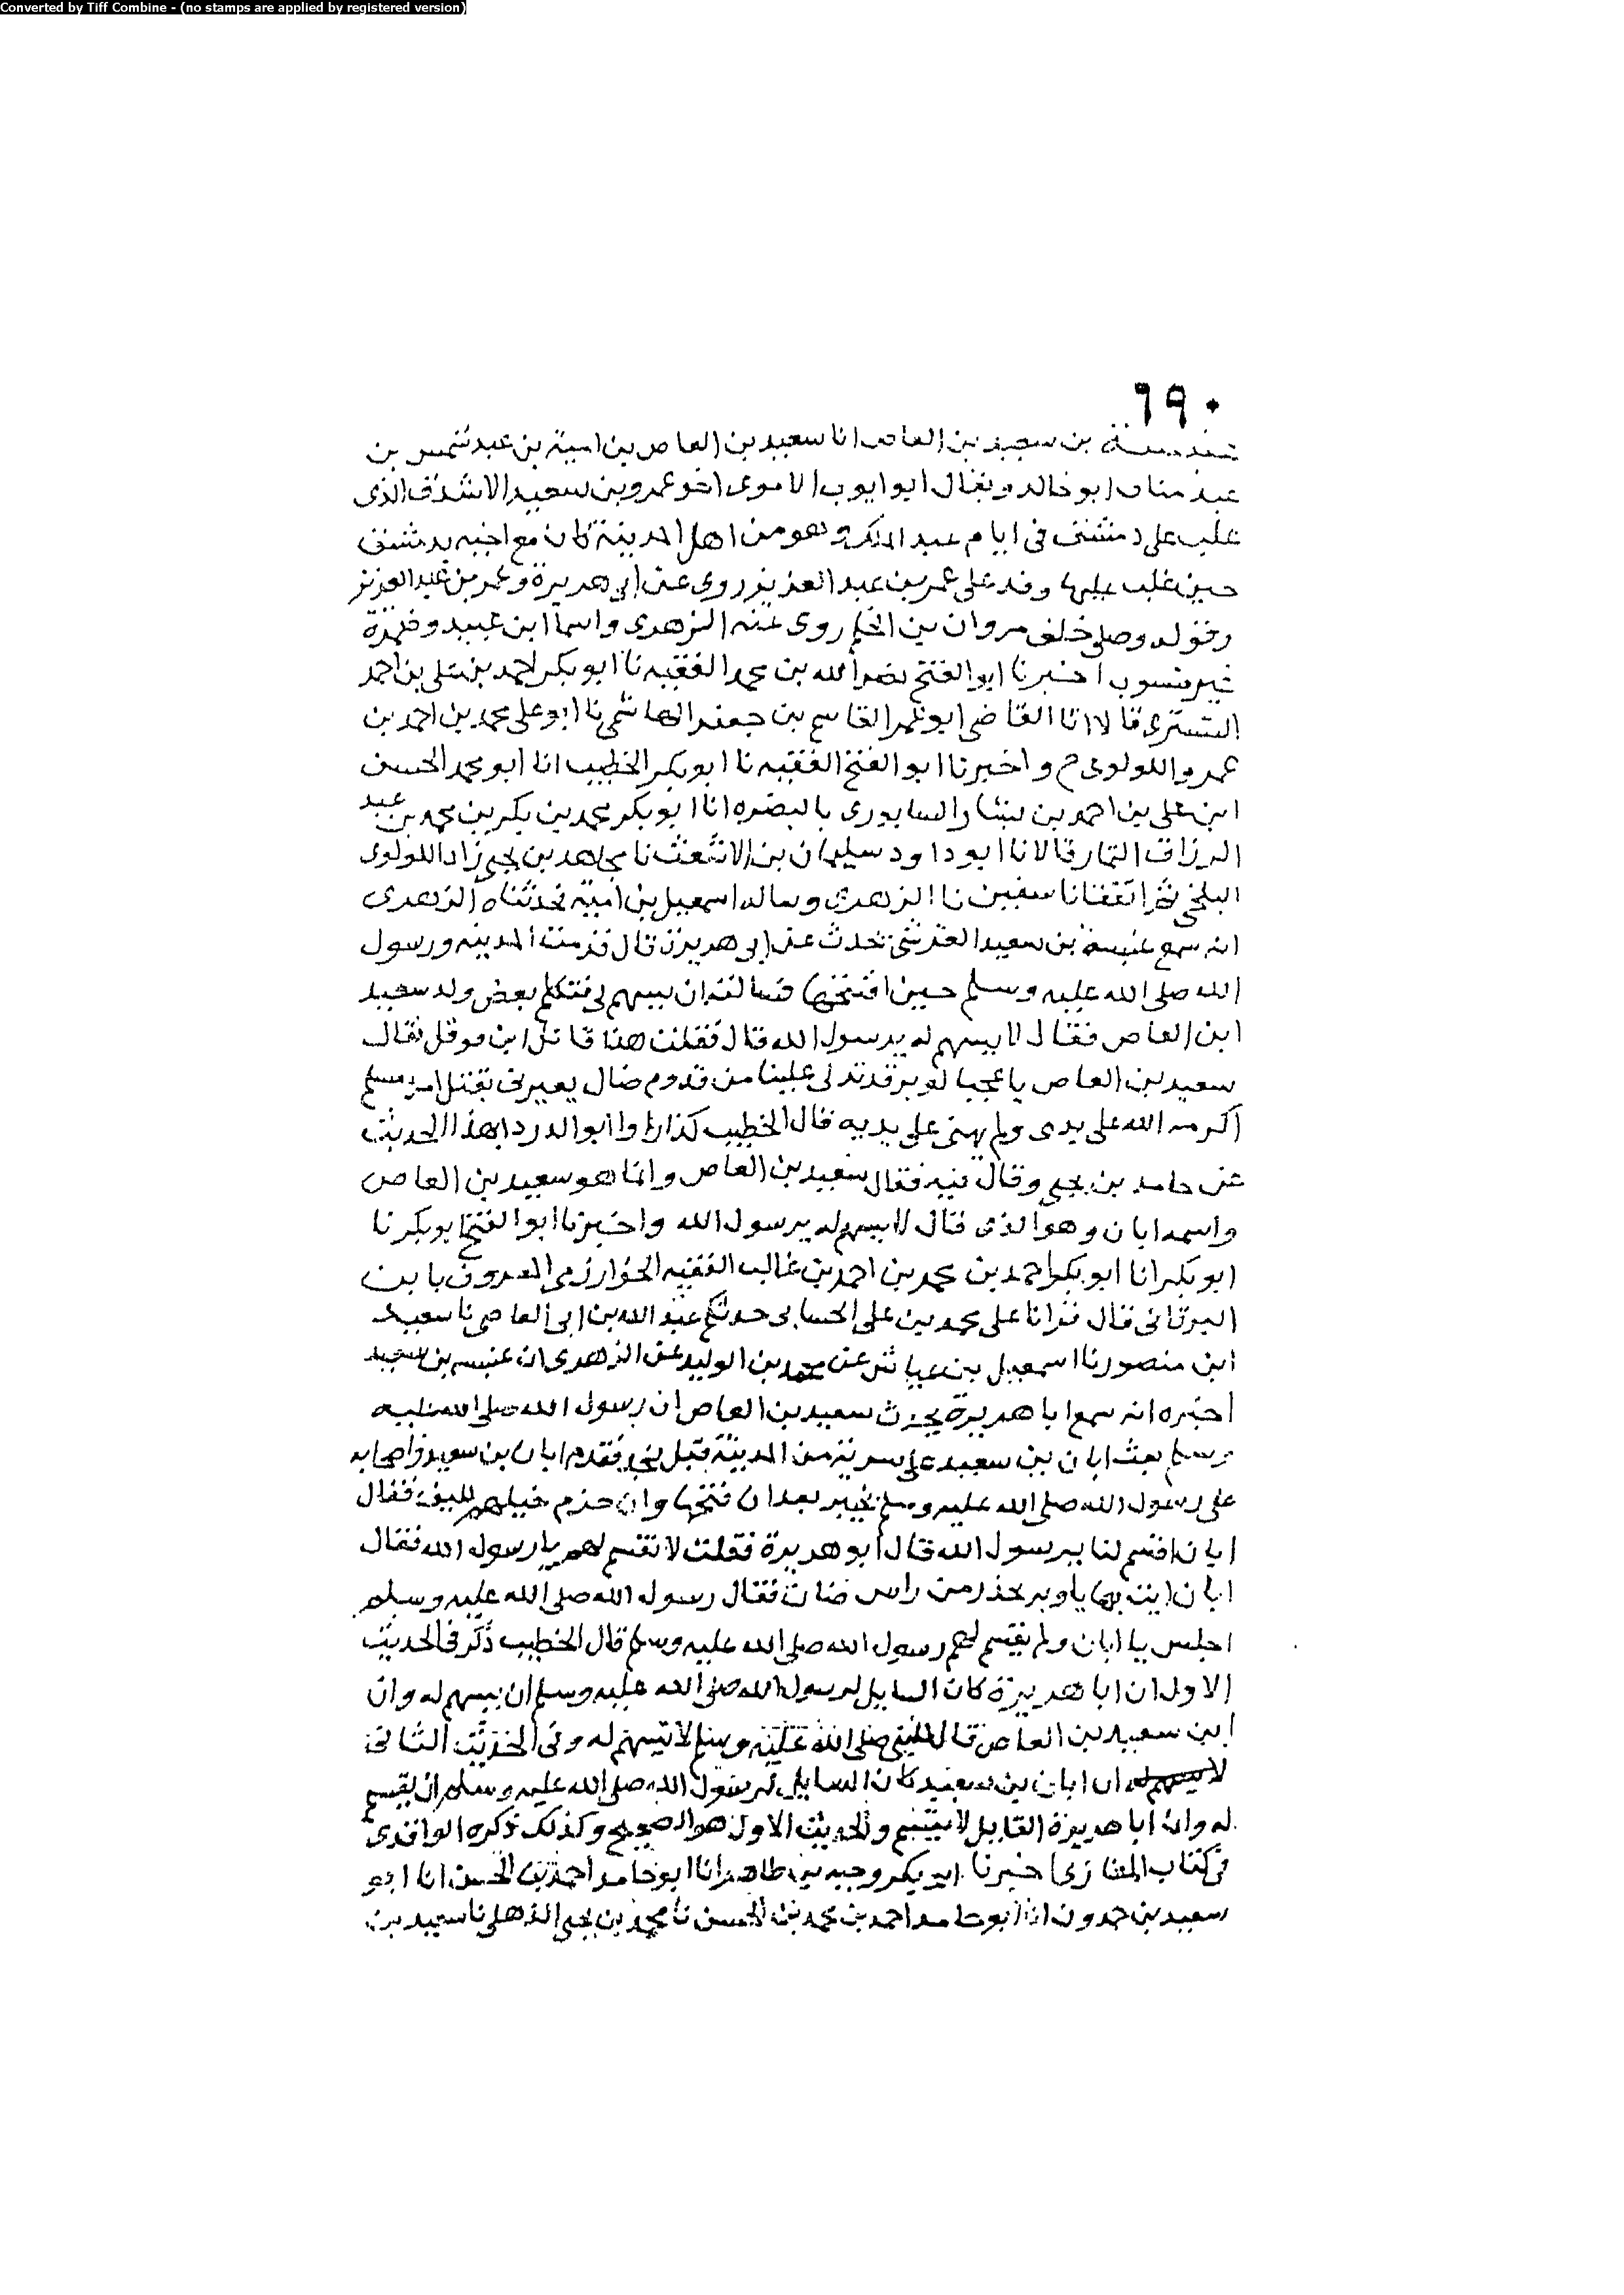 Converted by Tiff Combine - (no stamps are applied by registered version)
٦٩٠
عنبسة بن سعيد بن العاص انا سعيد بن العاص بن امية بن عبد شمس بن
عبد مناف ابو خالد ويقال ابو ايوب الاموى اخو عمرو بن سعيد الاشدق الذى
غلب على دمشق فى ايام عبد الملك وهو من اهل المدينة كان مع اخيه بدمشق
حين غلب عليها وفد على عمر بن عبد العزيز روى عن ابى هريرة وعمر بن عبد العزيز
وصلى خلف مروان بن الحكم روى عنه الزهرى واسما ابن عبيد
غير منسوب اخبرنا ابو الفتح نصر الله بن محمد الفقيه نا ابو بكر احمد بن على بن احمد
التسترى قالا انا القاضى ابو عمر القاسم بن جعفر الهاشمى نا ابو على محمد بن احمد بن
عمرو اللولوى ح واخبرنا ابو الفتح الفقيه نا ابو بكر الخطيب انا ابو محمد الحسن
ابن على بن احمد بن بشار السابورى بالبصره انا ابو بكر محمد بن بكر بن محمد بن عبد
الرزاق التمار قالا نا ابو داود سليمان بن الاشعث نا مجاهد بن يحيى زاد اللولوى
البلخى ثم اتفقا نا سفين نا الزهرى وساله اسمعيل بن امية فحدثناه الزهرى
انه سمع عنبسة بن سعيد القرشى يحدث عن ابى هريرة قال قدمت المدينه ورسول
الله صلى الله عليه وسلم حين افتتحها فسالته ان يسهم لى فتكلم بعض ولد سعيد
ابن العاص فقال لا يسهم له يرسول الله قال فقلت هذا قاتل ابن قوقل فقال
سعيد بن العاص يا عجبا لوبر قد تدلى علينا من قدوم ضال يعيرنى بقتل امرء مسلم
اكرمه الله على يدى ولم يهنى على يديه قال الخطيب كذا رواه ابو الدرداء هذا الحديث
عن حامد بن يحيى وقال فيه فقال سعيد بن العاص وانما هو سعيد بن العاص
واسمه ابان وهو الذى قال لا يسهم له يرسول الله واخبرنا ابو الفتح ابو بكر نا
ابو بكر انا ابو بكر احمد بن محمد بن احمد بن غالب الفقيه الخوارزمى المعروف با بن
البرقانى قال قرانا على محمد بن على الحسابى حدثكم عبد الله بن ابى العاصى نا سعيد
ابن منصور نا اسمعيل بن عياش عن محمد بن الوليد عن الزهرى ان عنبسه بن سعيد
اخبره انه سمع ابا هريرة يحدث سعيد بن العاص ان رسول الله صلى الله عليه
وسلم بعث ابان بن سعيد على سرية من المدينة قبل نجد فقدم ابان بن سعيد واصحابه
على رسول الله صلى الله عليه وسلم بخيبر بعد ان فتحها وان حزم خيلهم لليف فقال
ابان اقسم لنا يرسول الله قال ابو هريرة فقلت لا تقسم لهم يا رسول الله فقال
ابان انت بها يا وبر تحدر من راس ضان فقال رسول الله صلى الله عليه وسلم
اجلس يا ابان ولم يقسم لهم رسول الله صلى الله عليه وسلم قال الخطيب ذكر فى الحديث
الاول ان ابا هريرة كان السايل لرسول الله صلى الله عليه وسلم ان يسهم له وان
ابن سعيد بن العاص قال للنبى صلى الله عليه وسلم لا تسهم له وفى الحديث الثانى
لا يسهم له ان ابان بن سعيد كان السايل لرسول الله صلى الله عليه وسلم ان يقسم
له وان ابا هريرة القايل لا تقسم والحديث الاول هو الصحيح وكذلك ذكره الواقدى
فى كتاب المغازى اخبرنا ابو بكر وجيه بن طاهر انا ابو حامد احمد بن الحسن انا ابو
سعيد بن حمدون انا ابو حامد احمد بن محمد بن الحسن نا محمد بن يحيى الذهلى نا سعيد بن